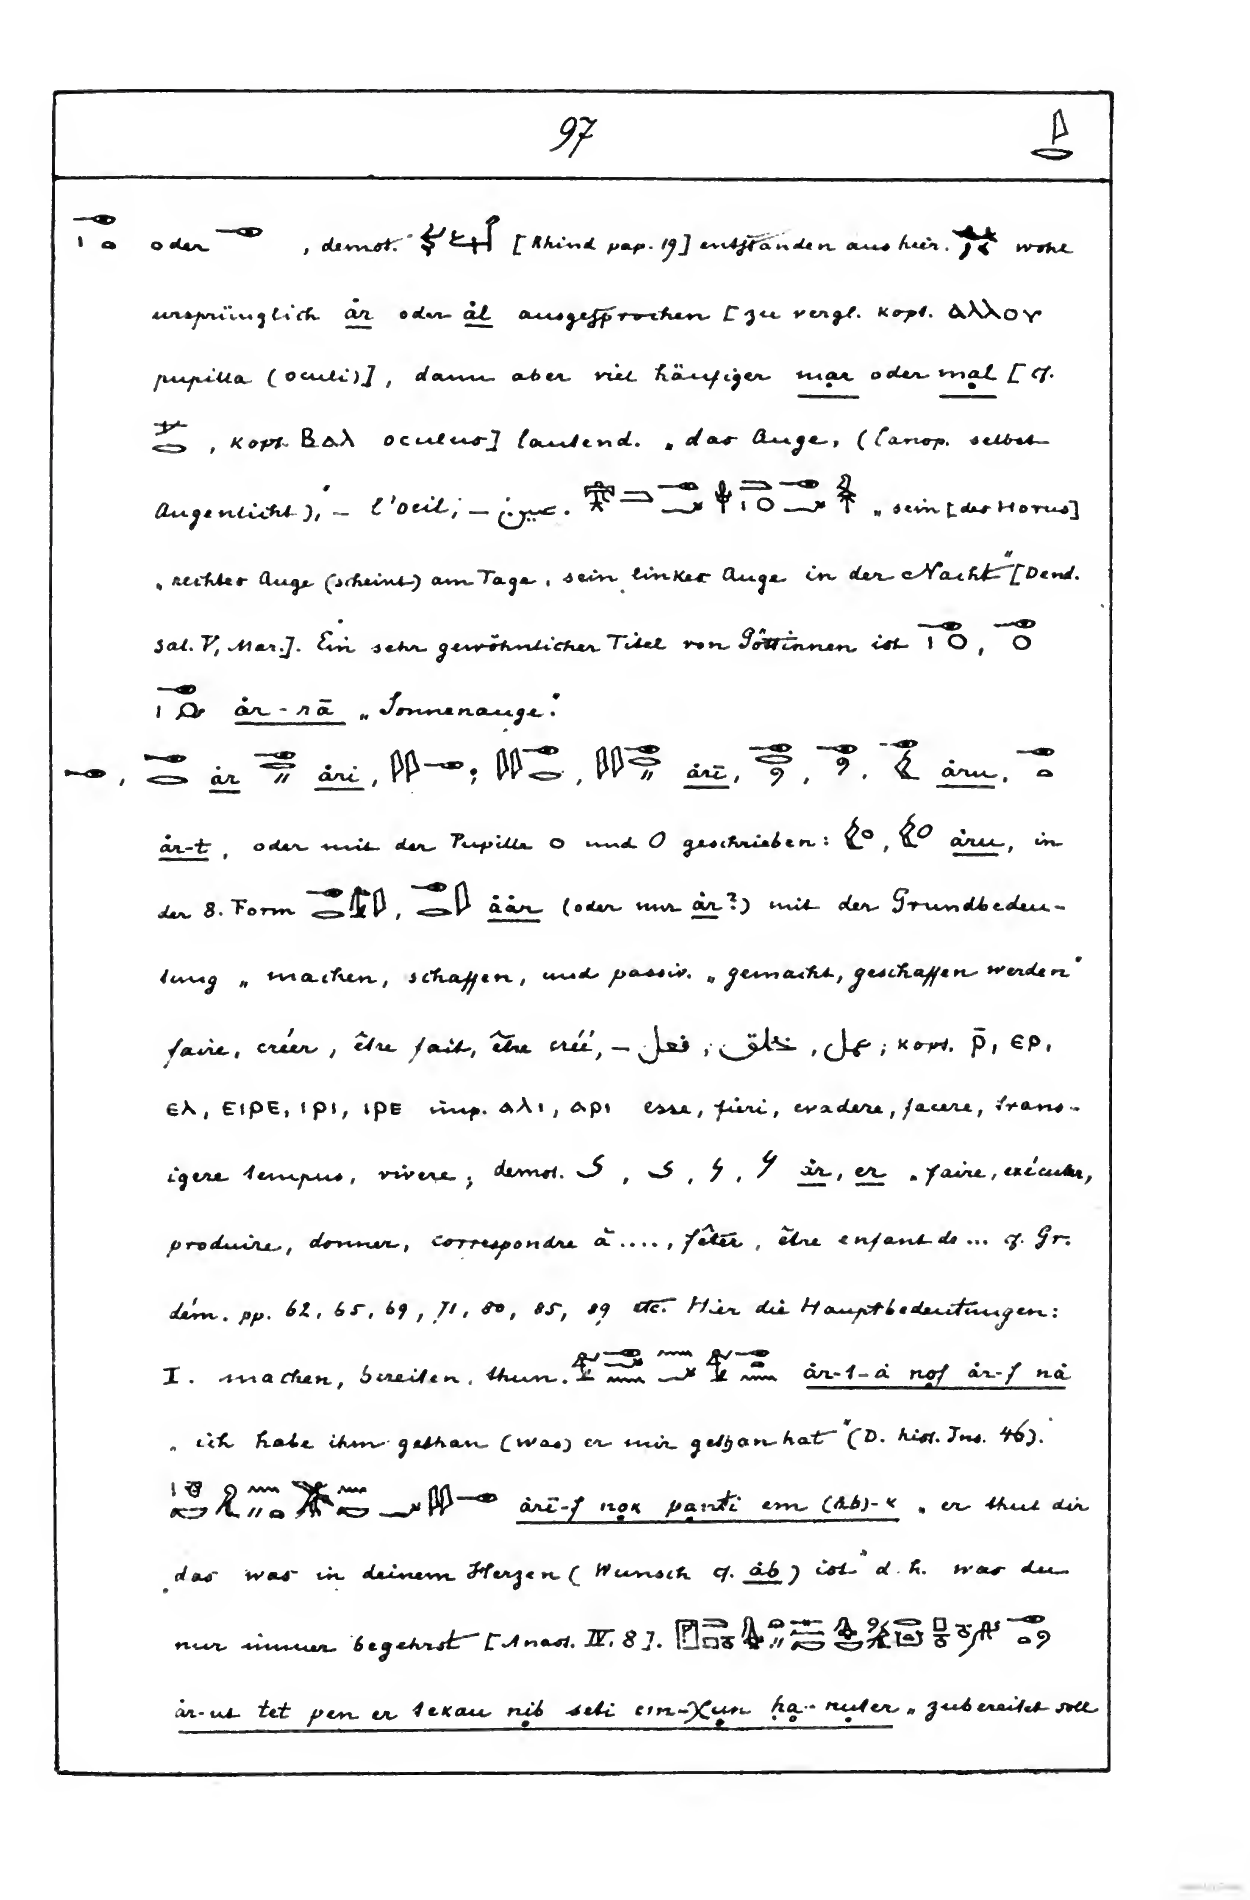 97
oder , demot. [Rhind pap. 19] entstanden aus hier. wohl
ursprünglich ȧr oder ȧl ausgesprochen [zu vergl. kopt. ⲁⲗⲗⲟⲩ
pupilla (oculi)], dann aber viel häufiger mar oder mal [cf.
, kopt. ⲃⲁⲗ oculus] lautend. „das Auge, (Canop. selbst
Augenlicht),“ – l'oeil, – عين. „sein [des Horus]
„rechtes Auge (scheint) am Tage, sein linkes Auge in der Nacht“ [Dend.
sal. V, Mar.]. Ein sehr gewöhnlicher Titel von Göttinnen ist ,
ȧr-rā „Sonnenauge“.
, ȧr ȧri, ; , ȧrī, , , ȧru,
ȧr-t, oder mit der Pupille o und O geschrieben: , ȧru, in
der 8. Form , ȧȧr (oder nur ȧr?) mit der Grundbedeu-
tung „machen, schaffen, und passiv. „gemacht, geschaffen werden“
faire, créer, être fait, être créé, – فعل, خلق, عمل; kopt. ⲣ̄, ⲉⲣ,
ⲉⲗ, ⲉⲓⲣⲉ, ⲓⲣⲓ, ⲓⲣⲉ imp. ⲁⲗⲓ, ⲁⲣⲓ esse, fieri, evadere, facere, trans-
igere tempus, vivere; demot. , , , ȧr, er „faire, exécuter,
produire, donner, correspondre à ...., fêter, être enfant de ... cf. Gr.
dém. pp. 62, 65, 69, 71, 80, 85, 89 etc. Hier die Hauptbedeutungen:
I. machen, bereiten, thun. ȧr-t-ȧ nof ȧr-f nȧ
„ich habe ihm gethan (was) er mir gethan hat“ (D. hist. Ins. 46).
ȧrī-f nok panti em (ȧb)-k „er thut dir
„das was in deinem Herzen (Wunsch cf. ȧb) ist“ d. h. was du
nur immer begehrst [Anast. IV. 8].
ȧr-ut tet pen er sekau nib seti em-χun ha-nuter „zubereitet soll